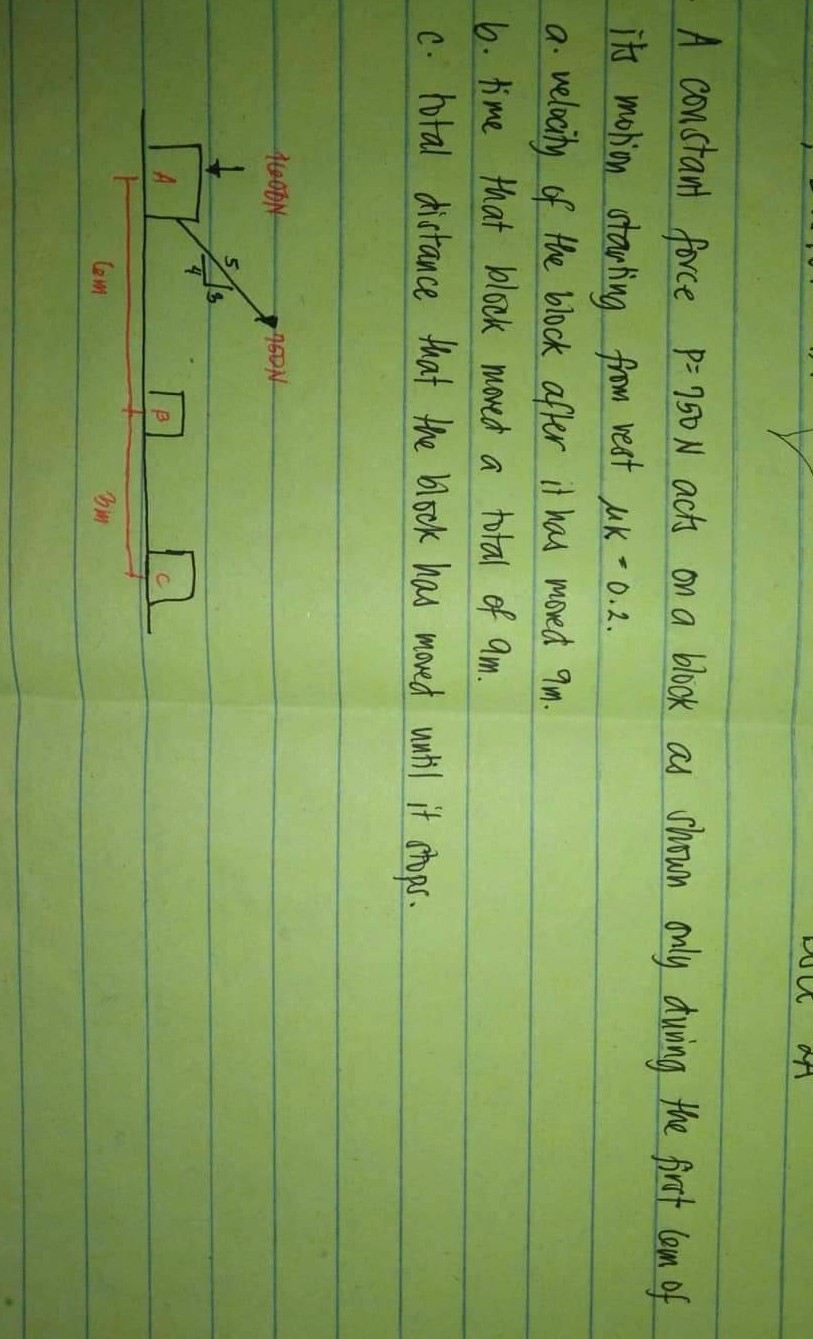 A constant force P=750N acts on a block as shown only during the first 6m of
its motion starting from rest μk = 0.2.
a. velocity of the block after it has moved 9m.
b. time that block moved a total of 9m.
c. total distance that the block has moved until it stops.
750N
5
3
4
A
B
C
6m
3m